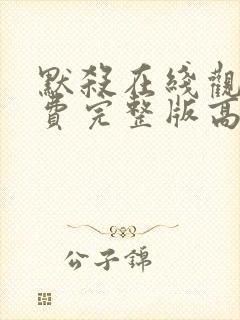 默殺在线觀
費完整版高
公子錦